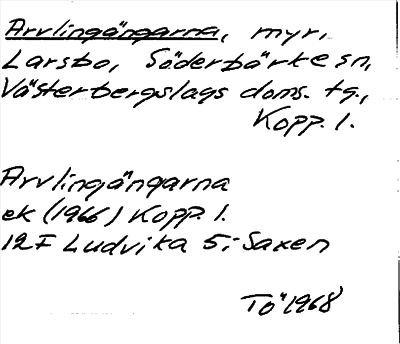 Arvlingängarna, myr,
Larsbo, Söderbärke sn,
Västerbergslags doms. tg.,
Kopp. l.
Arvlingängarna
ek (1966) Kopp. l.
12F Ludvika 5i Saxen
Tö 1968